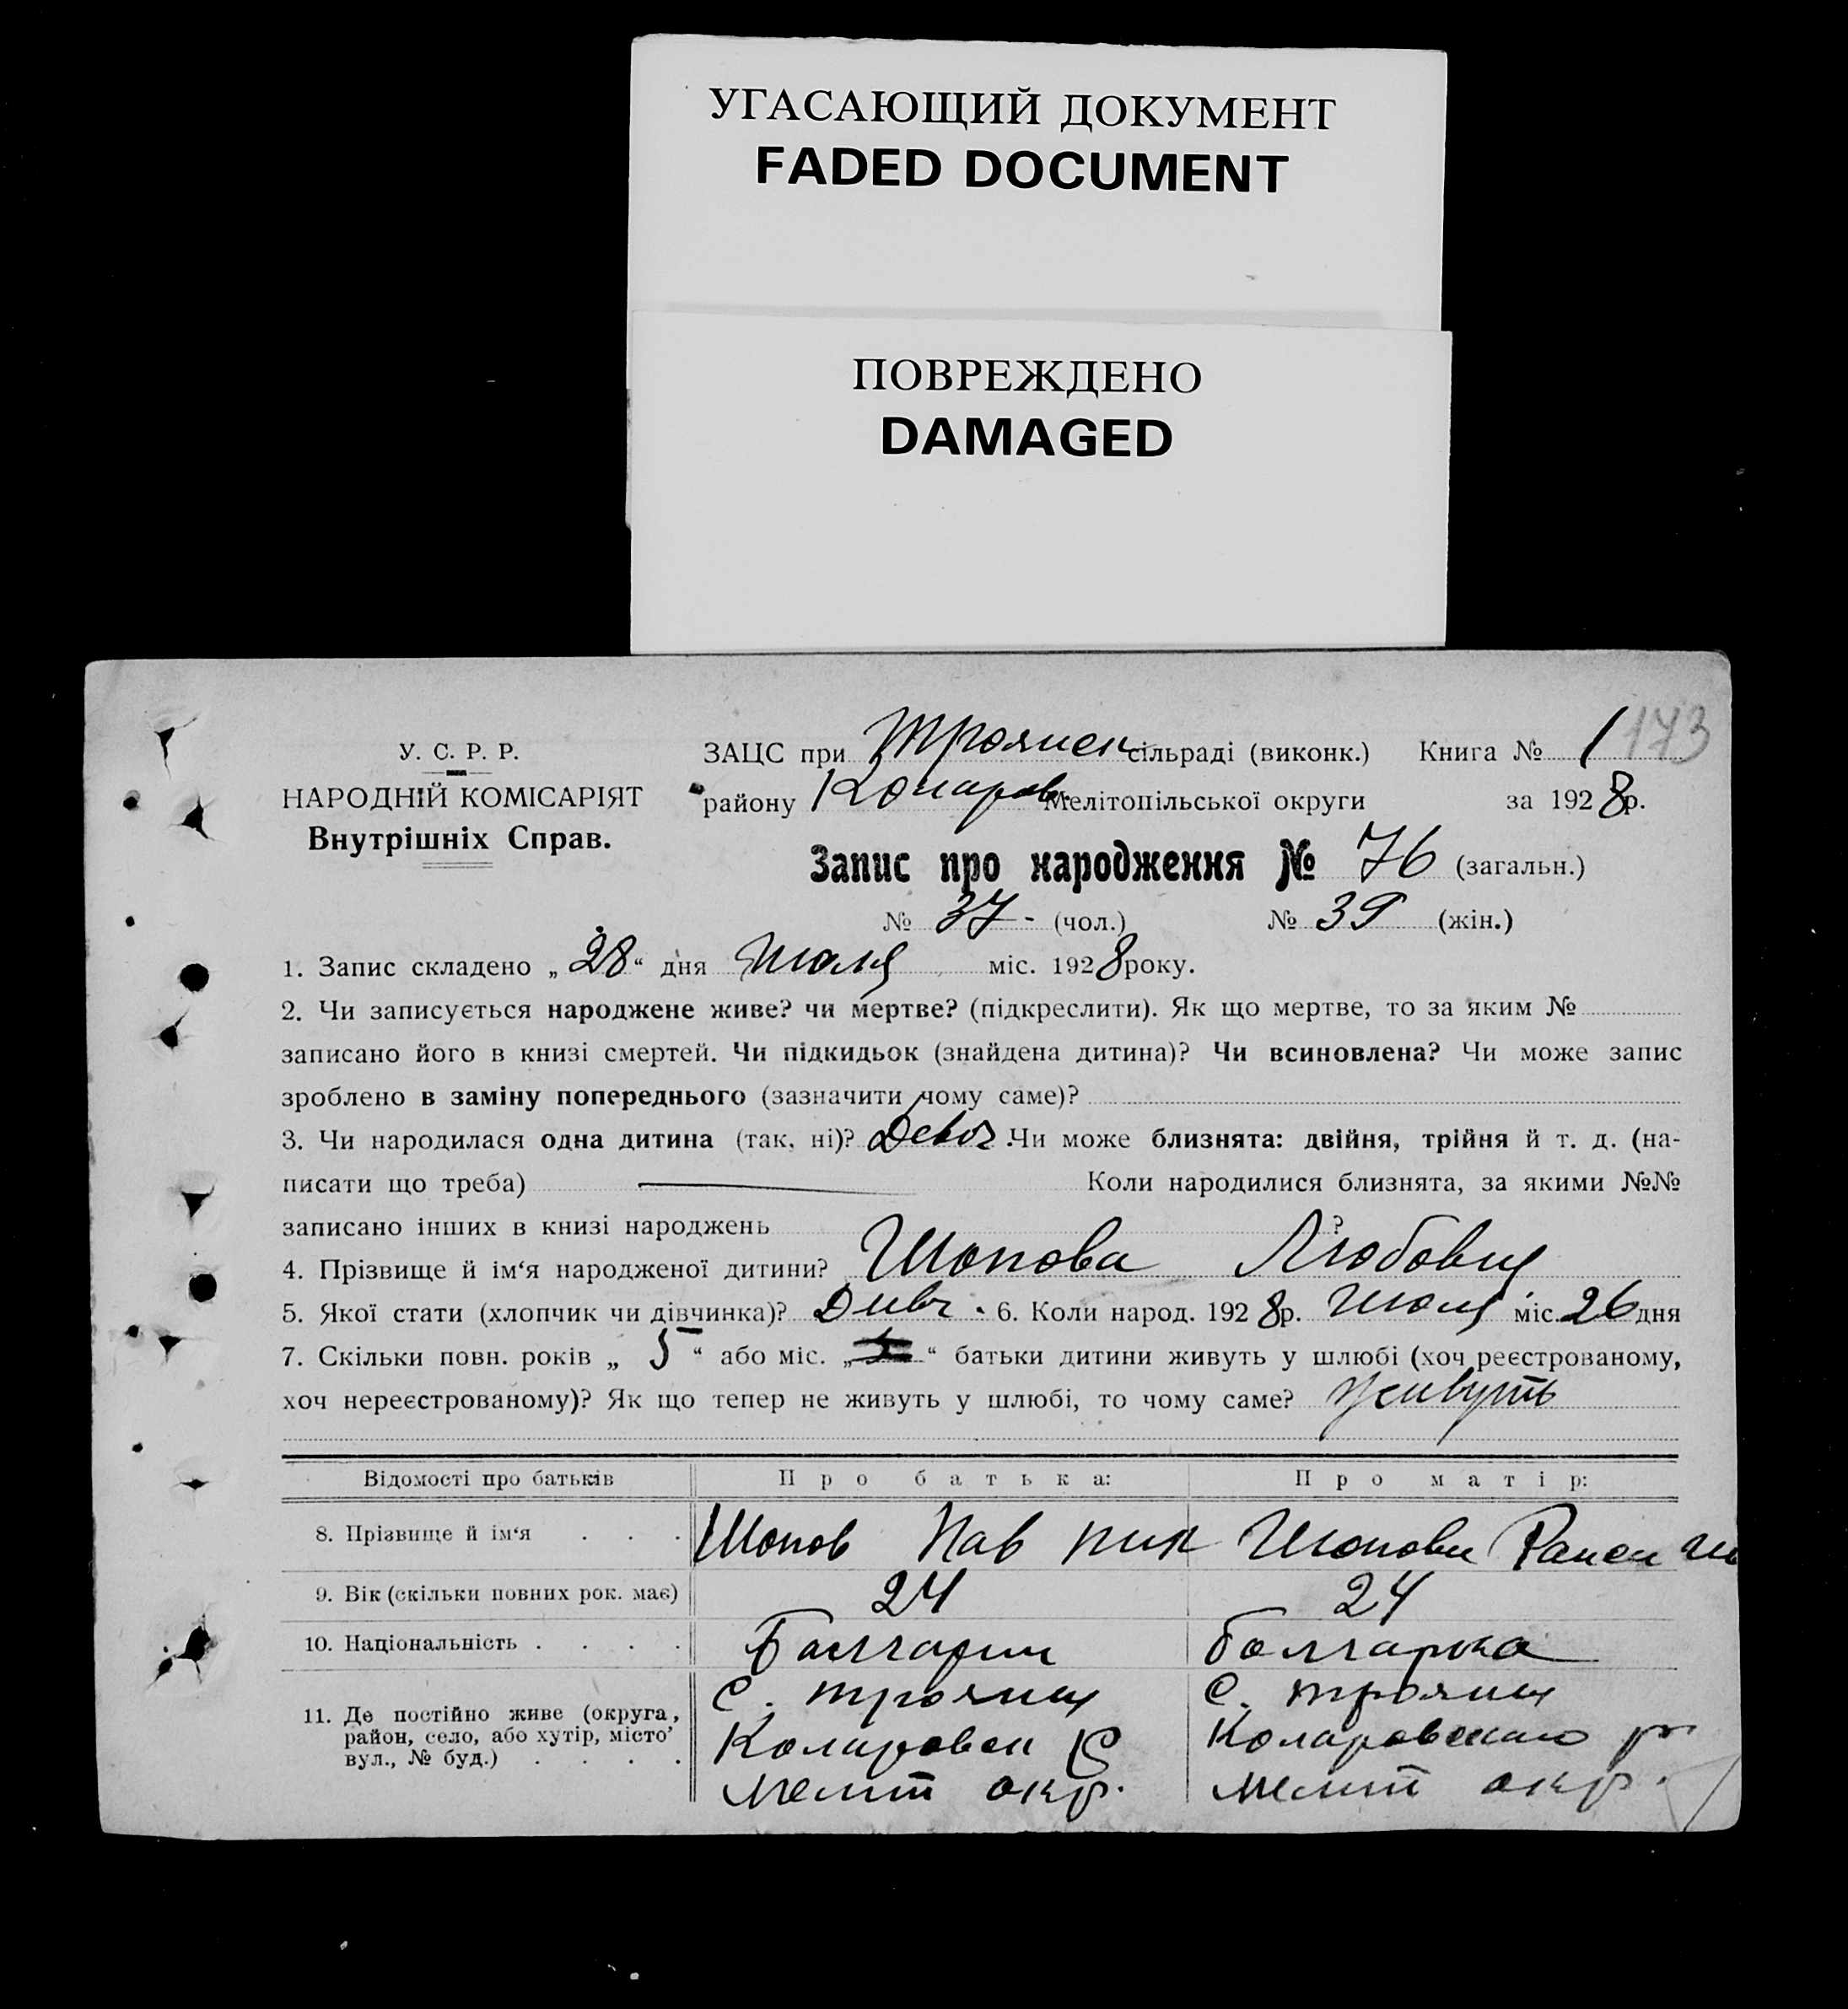 УГАСАЮЩИЙ ДОКУМЕНТ
FADED DOCUMENT
ПОВРЕЖДЕНО
DAMAGED
У. С. Р. Р.
НАРОДНІЙ КОМІСАРІЯТ
Внутрішніх Справ.
ЗАЦС при Троянск сільраді (виконк.) Книга № 1 173
району Коларов. Мелітопільської округи за 1928 р.
Запис про народження № 76 (загальн.)
№ 37 - (чол.) № 39 (жін.)
1. Запис складено „28“ дня Июля міс. 1928 року.
2. Чи записується народжене живе? чи мертве? (підкреслити). Як що мертве, то за яким №
записано його в книзі смертей. Чи підкидьок (знайдена дитина)? Чи всиновлена? Чи може запис
зроблено в заміну попереднього (зазначити чому саме)?
3. Чи народилася одна дитина (так, ні)? Чи може близнята: двійня, трійня й т. д. (на-
писати що треба) Коли народилися близнята, за якими №№
записано інших в книзі народжень ?
4. Прізвище й ім‘я народженої дитини? Шопова Любовь
5. Якої стати (хлопчик чи дівчинка)? Дивч. 6. Коли народ. 1928 р. Июля міс. 26 дня
7. Скільки повн. років „ 5 “ або міс. „ “ батьки дитини живуть у шлюбі (хоч реєстрованому,
хоч нереєстрованому)? Як що тепер не живуть у шлюбі, то чому саме? Живуть
Відомості про батьків Про батька: Про матір:
8. Прізвище й ім‘я . . . Шопов Пав Ник Шопова
9. Вік (скільки повних рок. має) 24 24
10. Національність . . . . Балгарин болгарка
11. Де постійно живе (округа, район, село, або хутір, місто’ вул., № буд.) . . . .
С. Трояны С. Трояны
Коларовск Р Коларовскаго р
Мелит окр. Мелит окр.